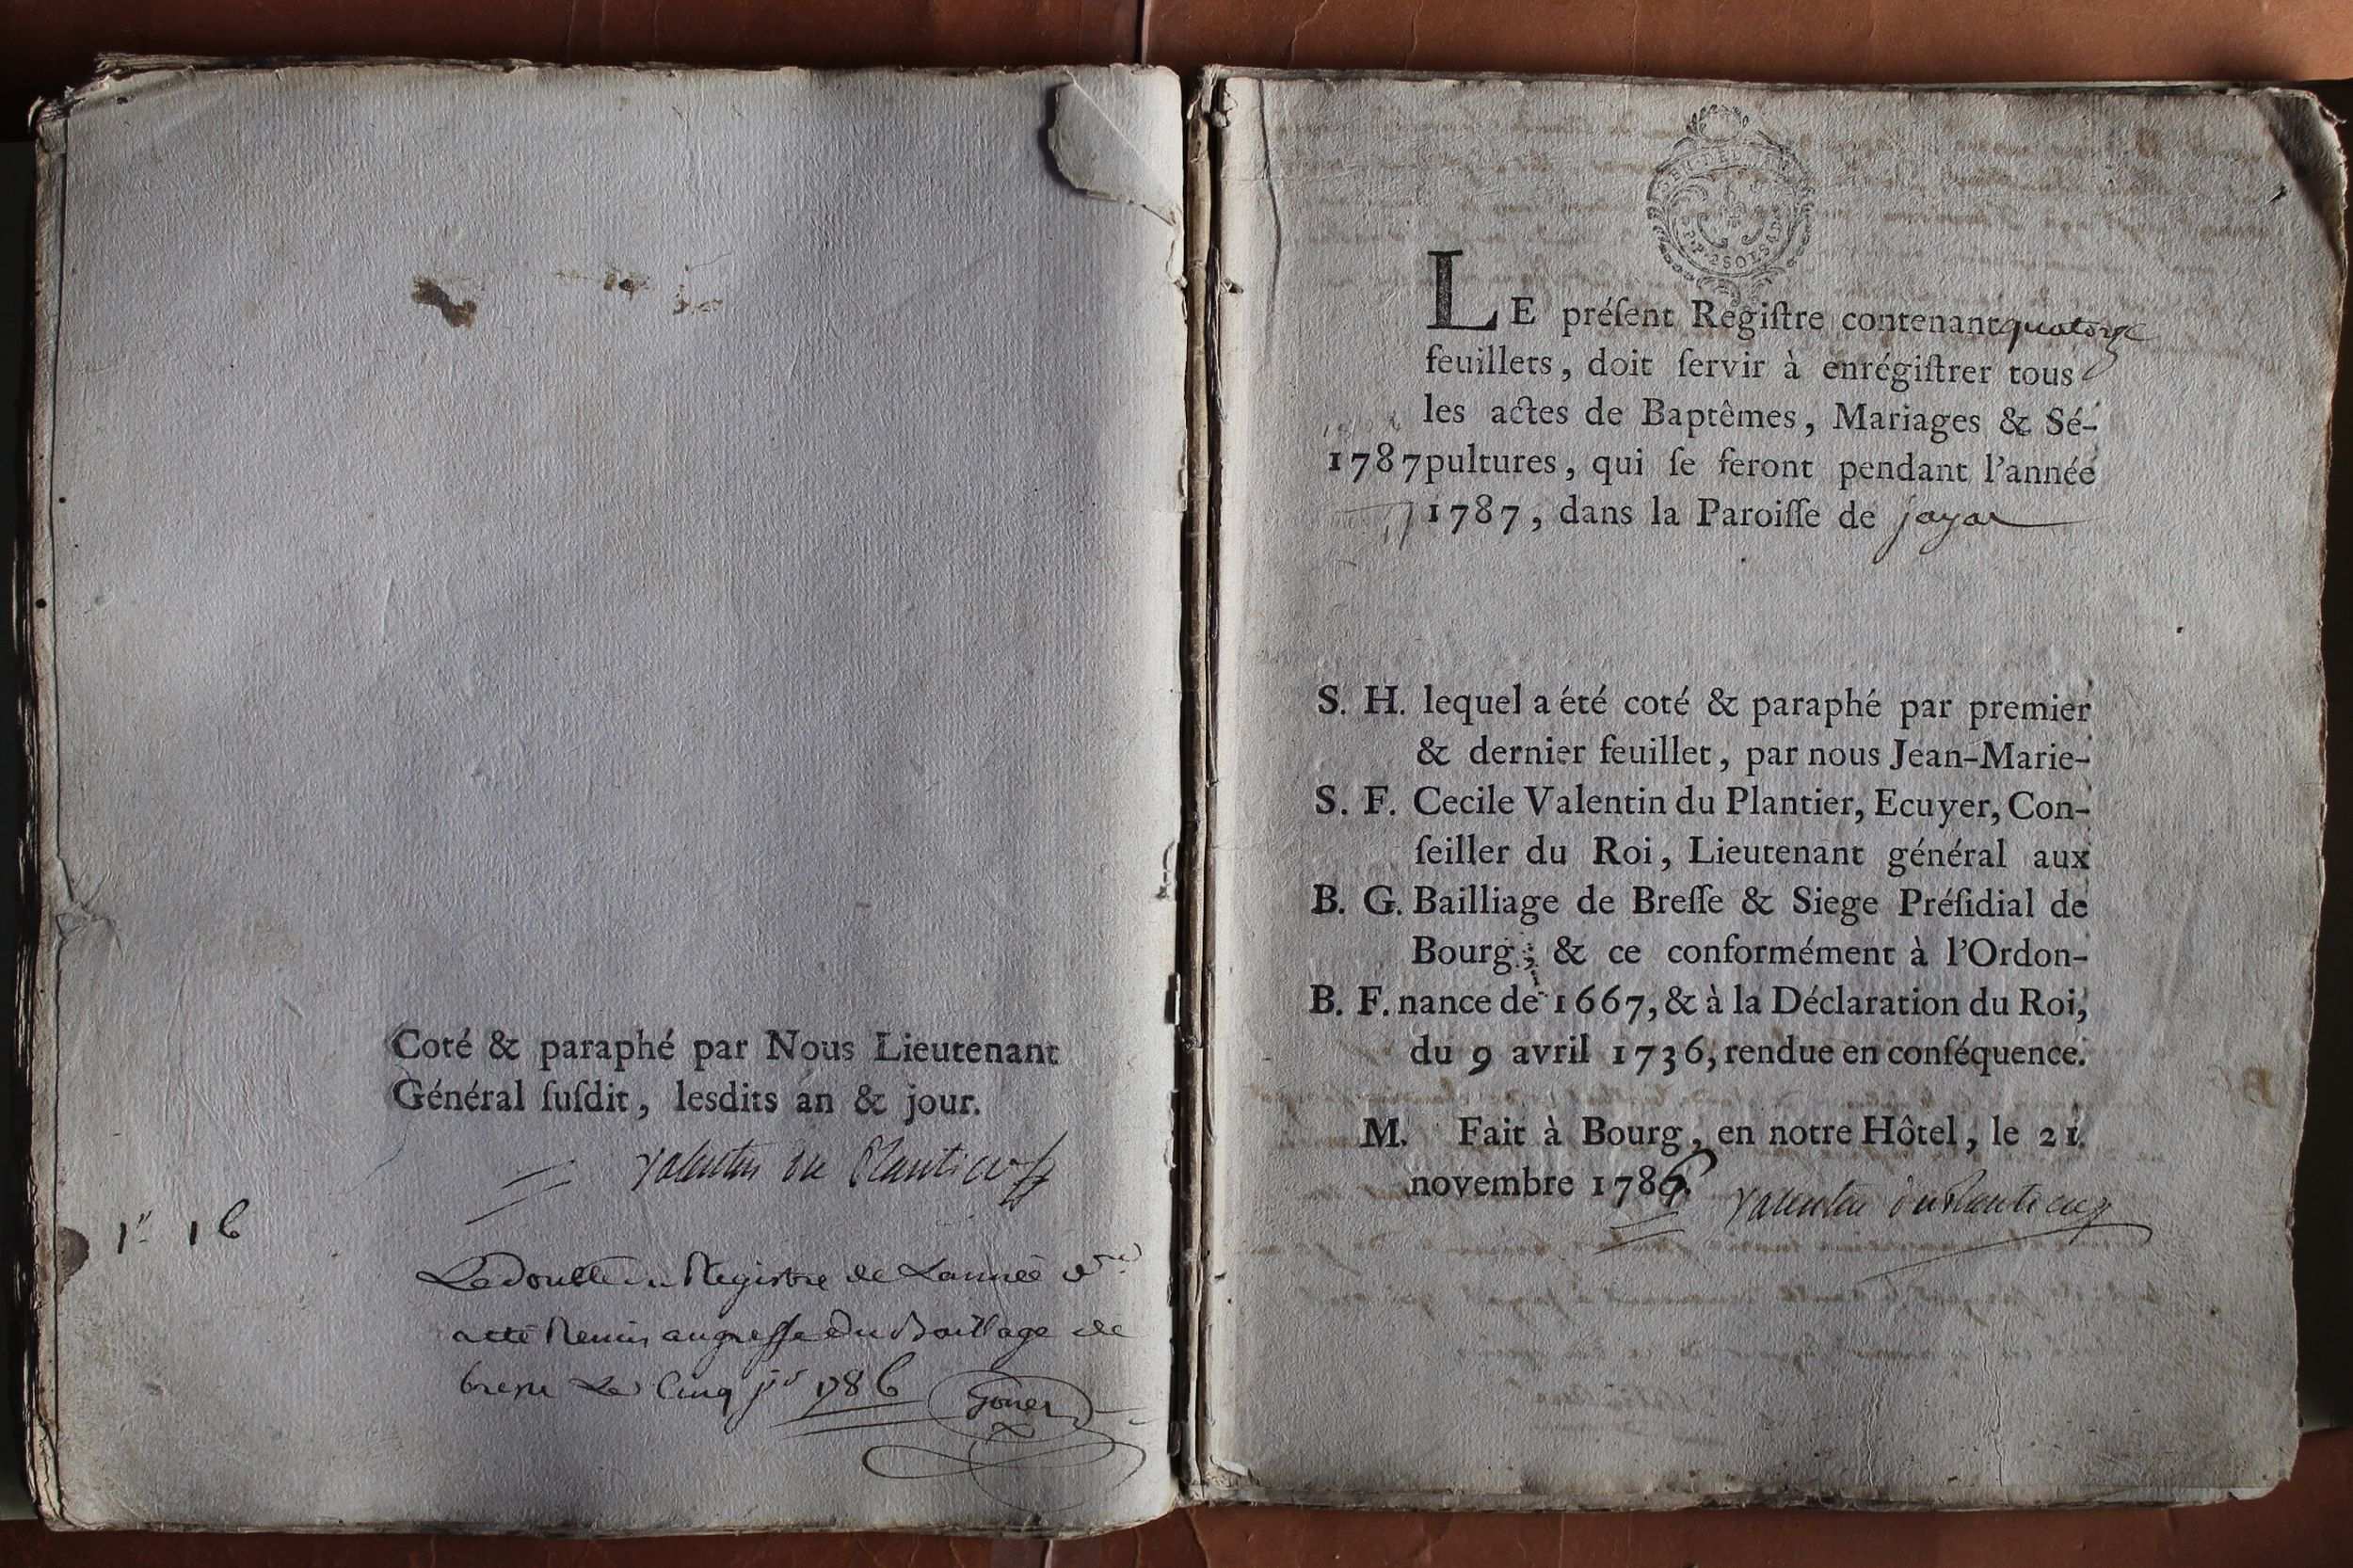 Coté & paraphé par Nous Lieutenant
Général ſuſdit, lesdits an & jour.
Valentin du Plantier
1 6
Le double du Registre de Lannée
a été Remis au greffe Du Baillage de
bresse Le Cinq 1786 Gouer
GEN. DE
P.P. 2 SOLS 4 D
LE préſent Regiſtre contenant quatorze
feuillets, doit ſervir à enrégiſtrer tous
les actes de Baptêmes, Mariages & Sé-
1787 pultures, qui ſe feront pendant l'année
1787, dans la Paroiſſe de jayat
S. H. lequel a été coté & paraphé par premier
& dernier feuillet, par nous Jean-Marie-
S. F. Cecile Valentin du Plantier, Ecuyer, Con-
ſeiller du Roi, Lieutenant général aux
B. G. Bailliage de Breſſe & Siege Préſidial de
Bourg; & ce conformément à l'Ordon-
B. F. nance de 1667, & à la Déclaration du Roi,
du 9 avril 1736, rendue en conſéquence.
M. Fait à Bourg, en notre Hôtel, le 21.
novembre 1786. Valentin du Plantier